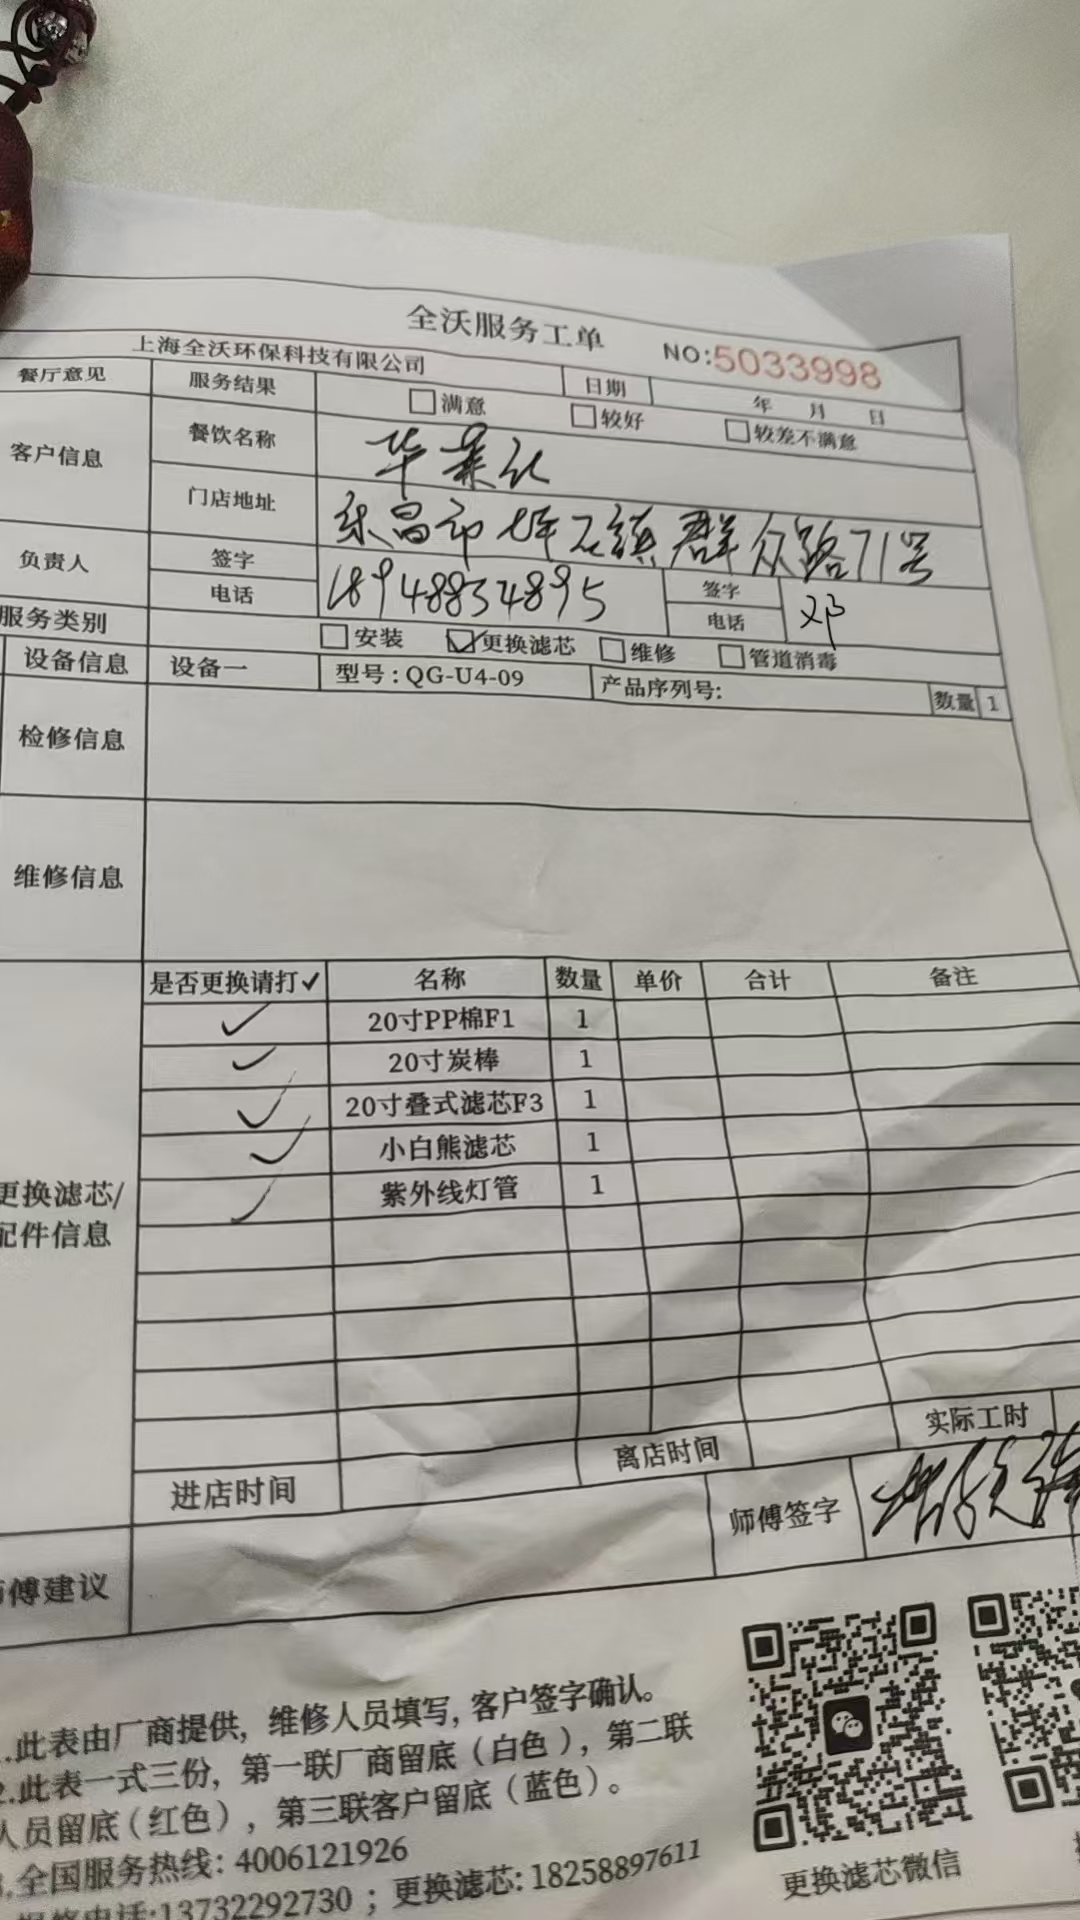 全沃服务工单
NO:5033998
上海全沃环保科技有限公司 日期 年 月 日
餐厅意见 服务结果 满意 较好 较差不满意
客户信息 餐饮名称 华莱士
门店地址 乐昌市坪石镇群众路71号
负责人 签字 签字 邓
电话 18948834895 电话
服务类别 安装 更换滤芯 维修 管道消毒
设备信息 设备一 型号:QG-U4-09 产品序列号: 数量 1
检修信息
维修信息
是否更换请打✓ 名称 数量 单价 合计 备注
✓ 20寸PP棉F1 1
✓ 20寸炭棒 1
✓ 20寸叠式滤芯F3 1
✓ 小白熊滤芯 1
✓ 紫外线灯管 1
更换滤芯/
配件信息
进店时间 离店时间 实际工时
师傅签字
师傅建议
1.此表由厂商提供, 维修人员填写, 客户签字确认。
2.此表一式三份, 第一联厂商留底（白色）, 第二联
人员留底（红色）, 第三联客户留底（蓝色）。
3.全国服务热线: 4006121926
报修电话:13732292730 ; 更换滤芯: 18258897611
更换滤芯微信